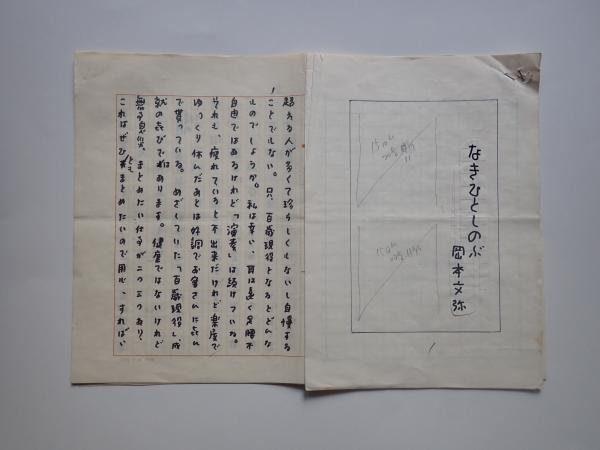 なきひとしのぶ
岡本文弥
1
1
超える人が多くて珍らしくもないし自慢する
ことでもない。只、百歳現役となるとどんな
ものでしょうか。私は幸い、耳は遠く足腰不
自由ではあるけれど「演奏」は続けている。
それも、疲れていると不出来だけれど楽屋で
ゆっくり休んだあとは好調でお客さんに喜ん
で貰っている。めざしていた「百歳現役」成
就の喜びではあります。健康ではないけれど
無事息災。まとめたい仕事が二つ三つあり、
これはぜひともまとめたいので用心、すればい